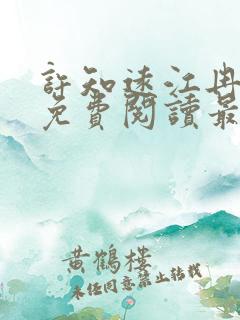 許知遠江冉
免費閱讀最
黃鶴樓
未經同意禁止轉載